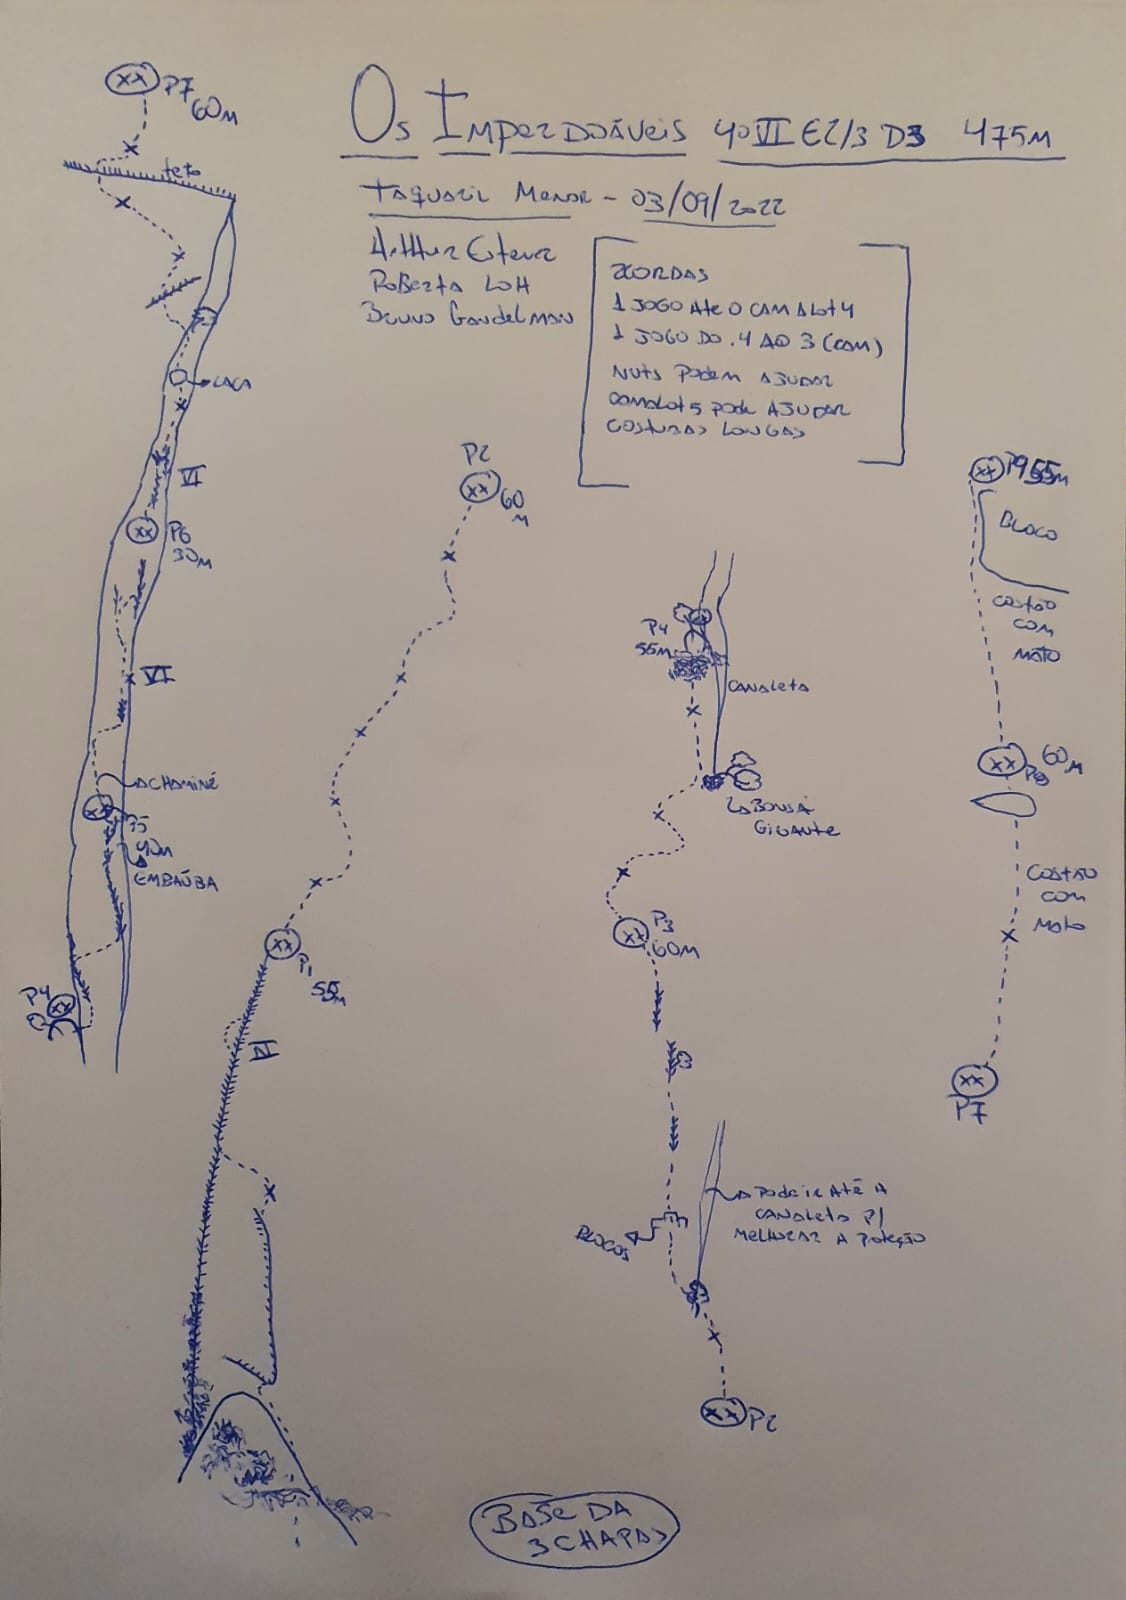 Os Imperdoáveis 4º VI E2/3 D3 475M
Taquaril Menor - 03/09/2022
Arthur Estevez
Roberta Loh
Bruno Gandelman
2 CORDAS
1 JOGO Até O CAMALOT 4
1 JOGO DO .4 AO 3 (CAM)
NUTS PODEM AJUDAR
CAMALOT 5 PODE AJUDAR
COSTURAS LONGAS
P7
60M
teto
LACA
VI
P6
30M
VI
CHAMINÉ
P5
40M
EMBAÚBA
P4
P2
60
M
P1
55M
VI
P4
55M
CANALETA
GIGANTE
P3
60M
BLOCOS
Pode ir Até A
CANALETA P/
MELHORAR A PoteÇão
P2
P9 55M
BLOCO
COSTÃO
COM
MATO
60M
P8
COSTÃO
COM
MATO
P7
BASE DA
3 CHAPAS